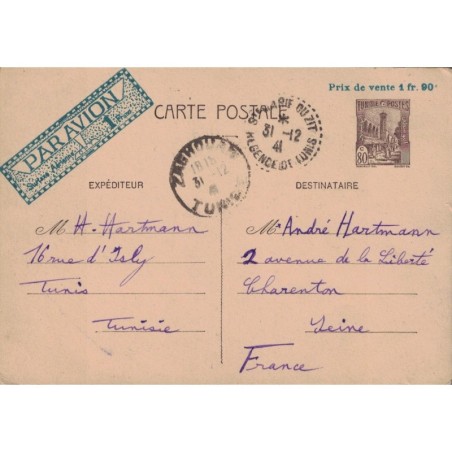 Prix de vente 1 fr. 90
PAR AVION
CARTE POSTALE
STE MARIE DU ZIT
31 -12
41
REGENCE DE TUNIS
TUNISIE POSTES
80
ZAGHOUAN
31 -12
41
TUNISIE
EXPÉDITEUR
DESTINATAIRE
M H. Hartmann
16 rue d'Isly
Tunis
Tunisie
M André Hartmann
2 avenue de la Liberté
Charenton
Seine
France